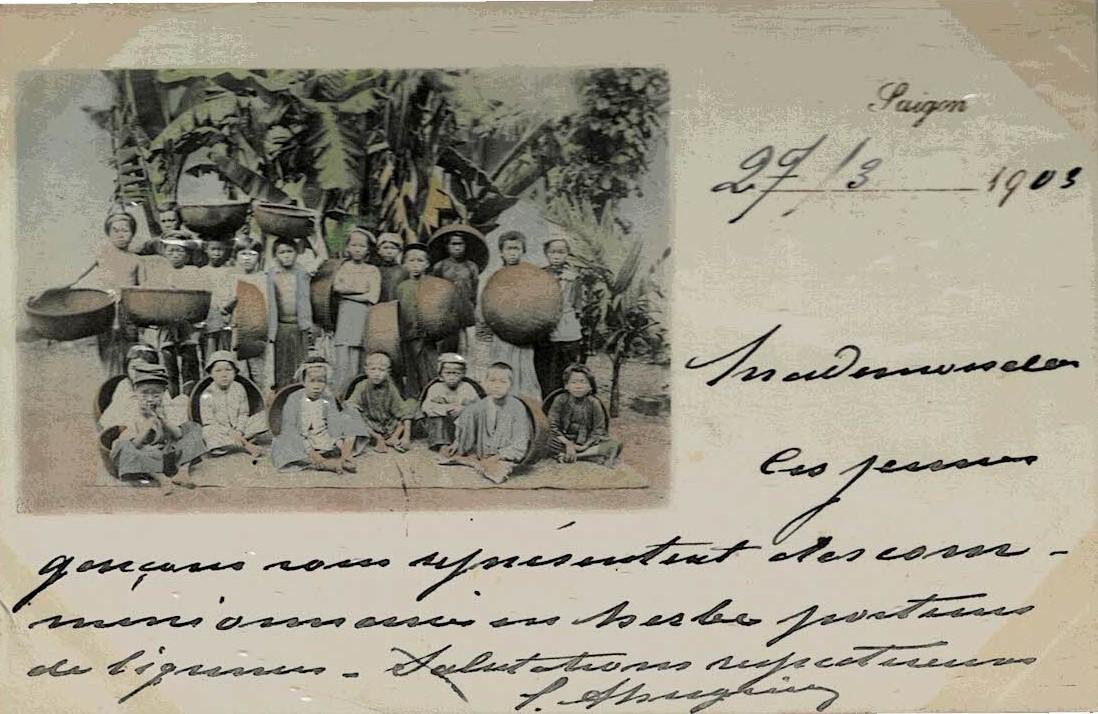 Saigon
27/3 1903
Mademoiselle
Ces jeunes
garçons vous représentent des com-
missionnaires en herbe porteurs
de légumes - Salutations respectueuses